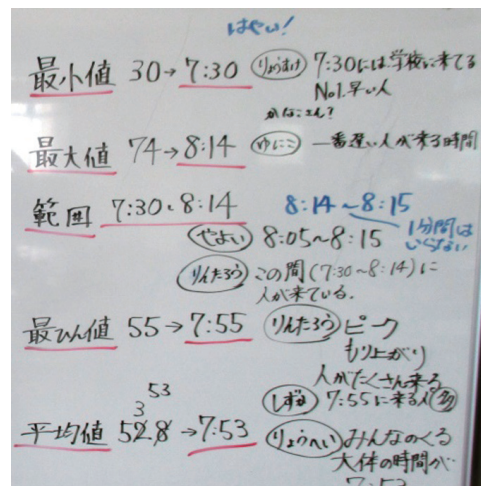 はやい!
最小値 30→7:30 りょうすけ 7:30には学校に来てる
No1.早い人
かなこさん?
最大値 74→8:14 ゆにこ 一番遅い人が来る時間
範囲 7:30、8:14 8:14~8:15
1分間は
いらない
やよい 8:05~8:15
りんたろう この間(7:30~8:14)に
人が来ている.
最ひん値 55→7:55 りんたろう ピーク
もり上がり
人がたくさん来る
53
しずね 7:55に来る人 多
3
平均値 52.8→7:53 りょうへい みんなのくる
大体の時間が
7:53